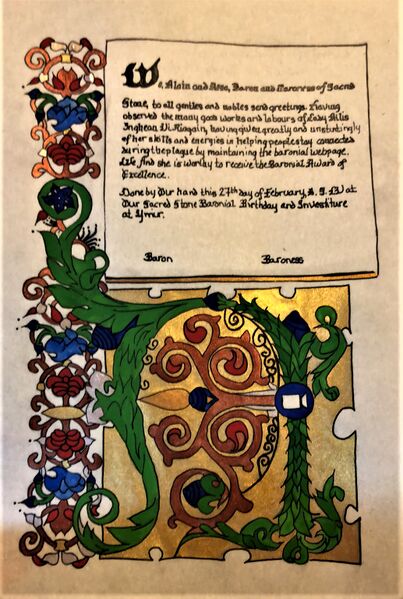 We, Alain and Rose, Baron and Baroness of Sacred
Stone, to all gentles and nobles send greetings. Having
observed the many good works and labours of Lady Ailis
Inghean Ui Riagain, having given greatly and unstintingly
of her skills and energies in helping people stay connected
during the plague by maintaining the baronial webpage,
We find she is worthy to receive the Baronial Award of
Excellence.
Done by Our hand this 27th day of February, A. S. 
Our Sacred Stone Baronial Birthday and Investiture
at Ymir.
Baron
Baroness